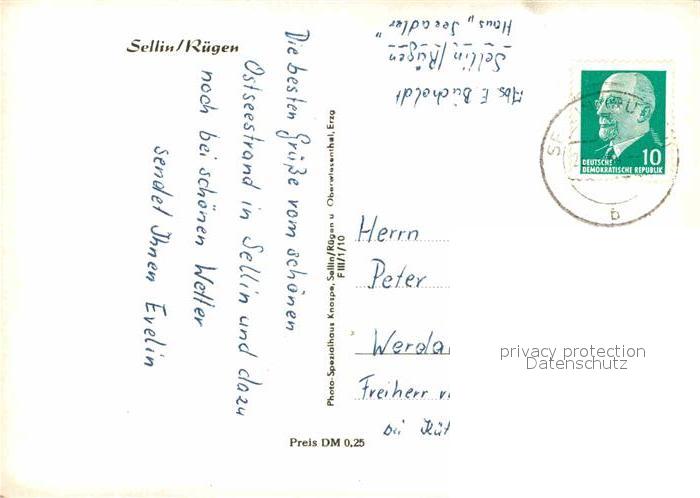 Sellin/Rügen
Die besten Grüße vom schönen
Ostseestrand in Sellin und dazu
noch bei schönen Wetter
sendet Ihnen Evelin
Abs. E. Bücholdt
Sellin/Rügen
Haus „Seeadler"
DEUTSCHE
DEMOKRATISCHE REPUBLIK
10
b
Photo-Spezialhaus Knospe, Sellin/Rügen u. Oberwiesenthal, Erzg
F III/1/10
Herrn
Peter
Werda
Freiherr v.
bei
privacy protection
Datenschutz
Preis DM 0,25